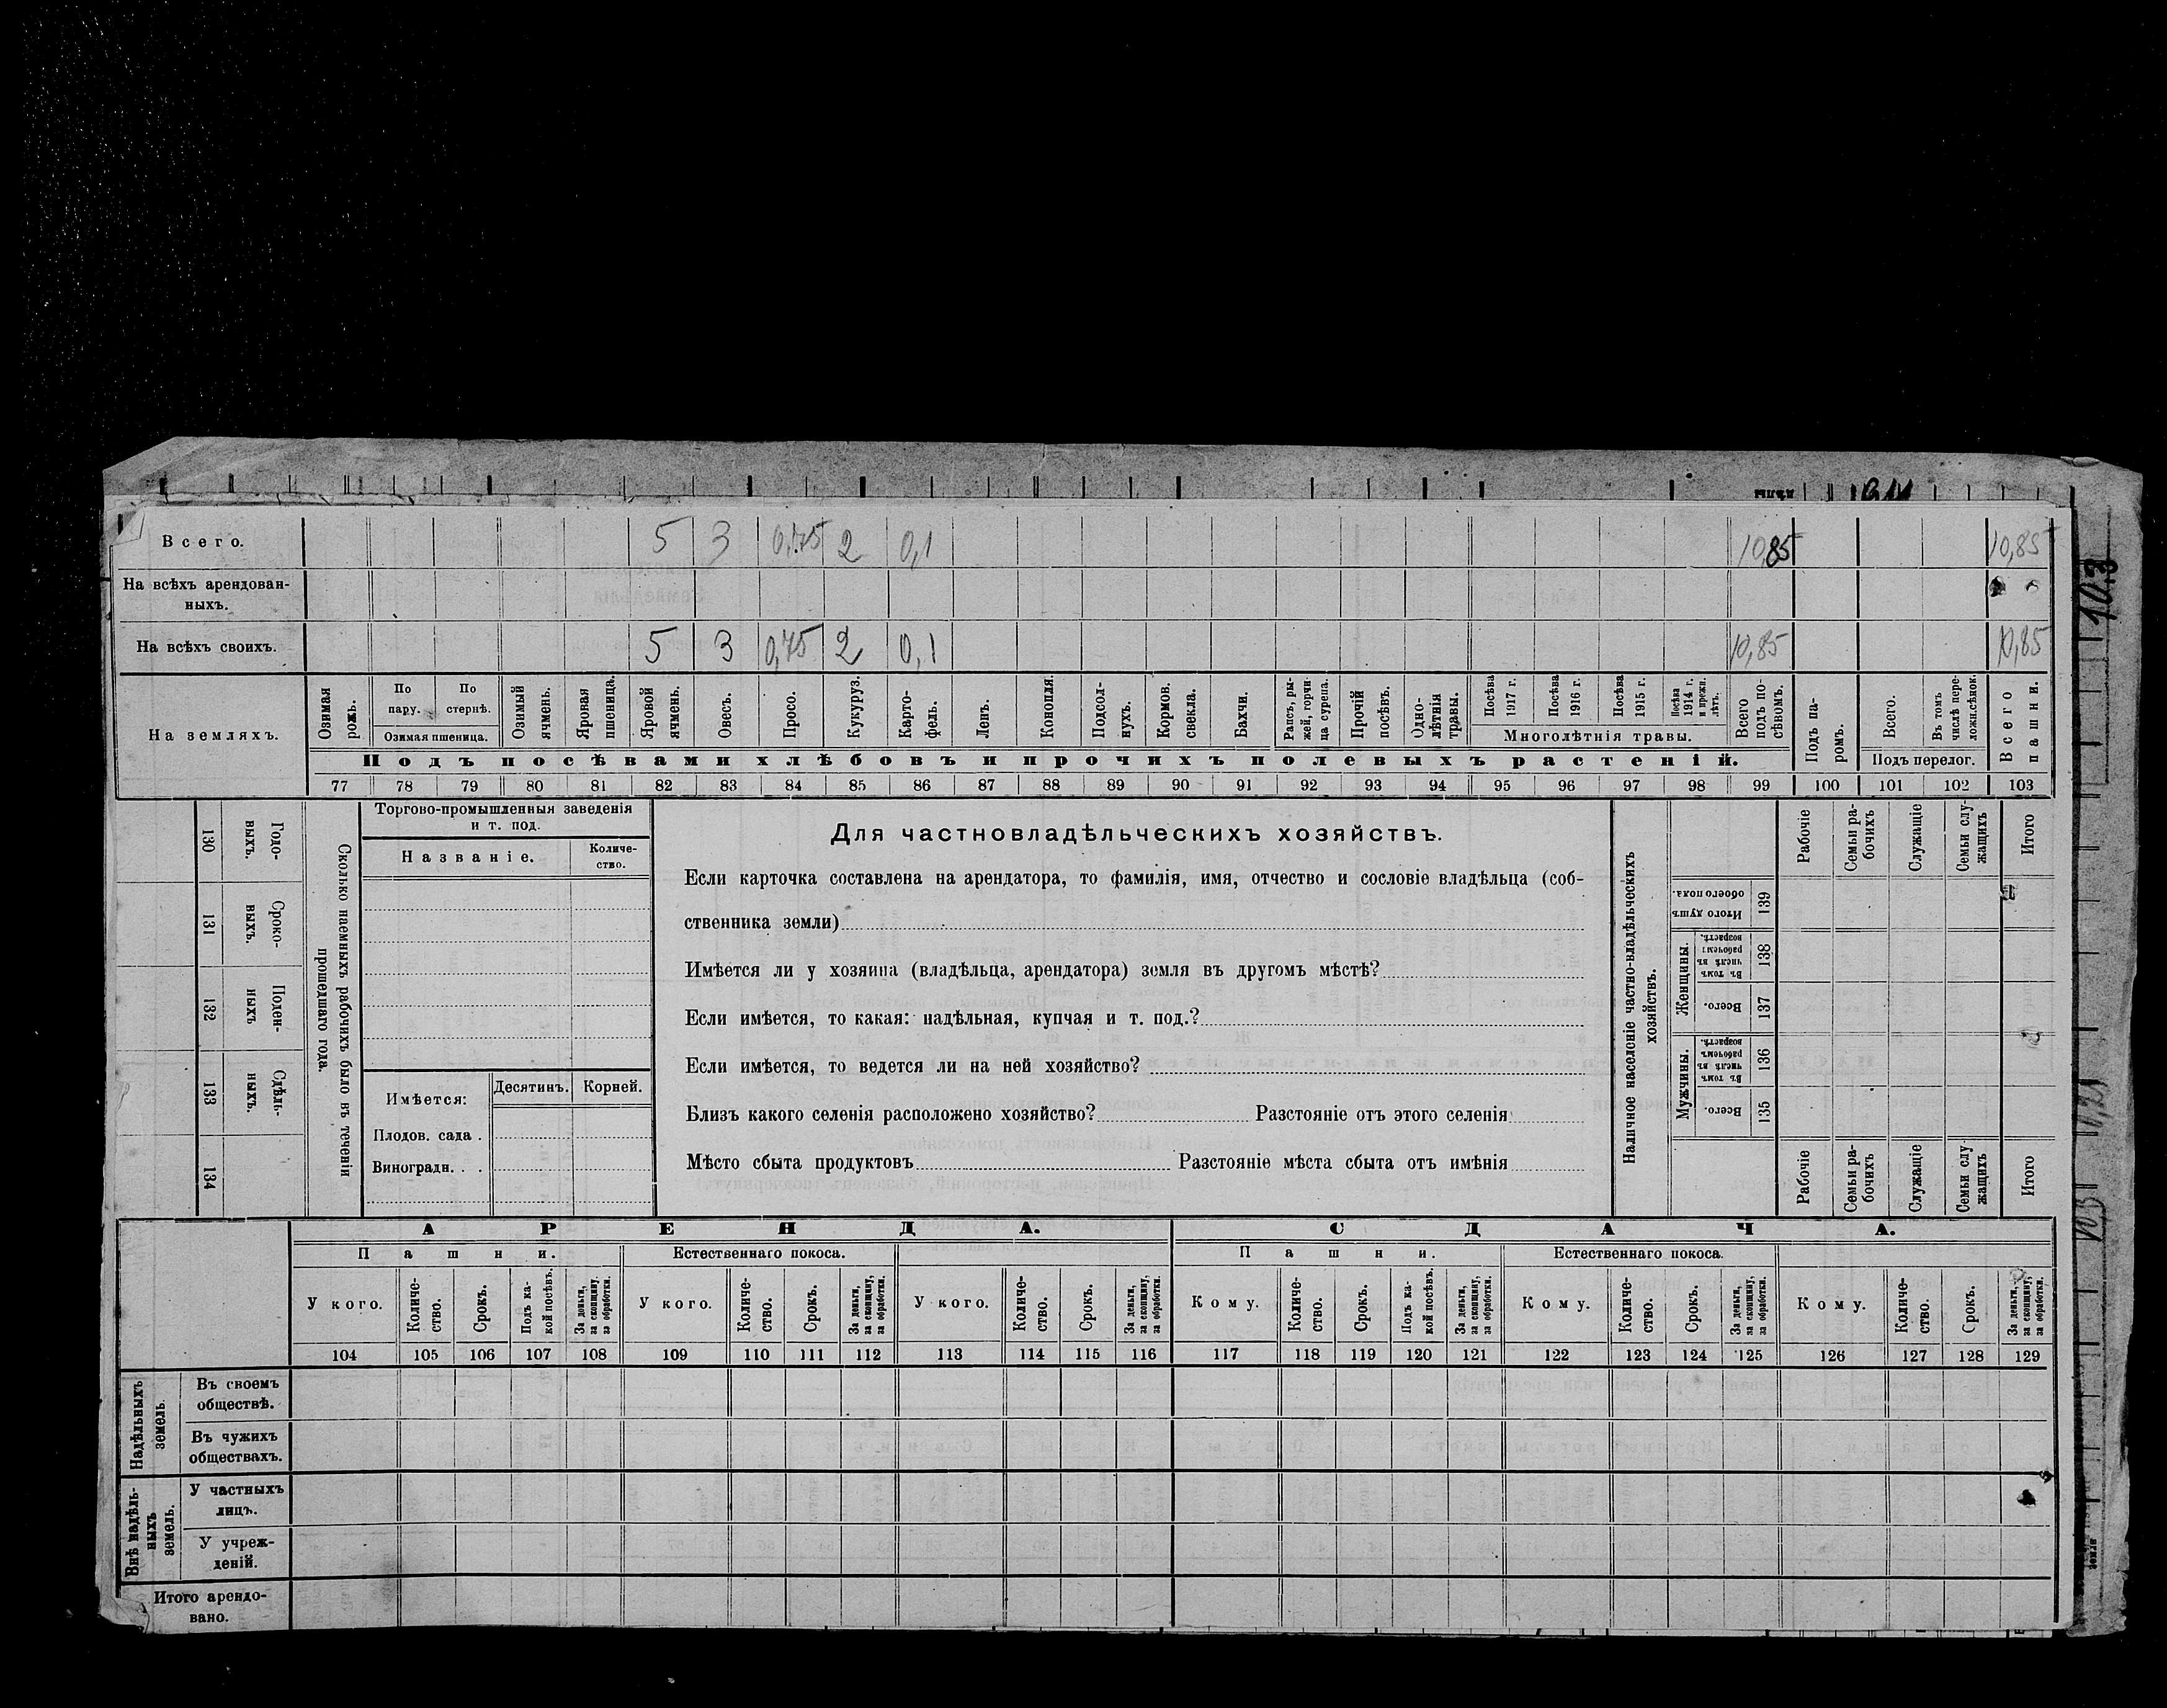 Всего. 5 3 0,75 2 0,1 10,85 10,85
На всѣхъ арендован-
ныхъ.
На всѣхъ своихъ. 5 3 0,75 2 0,1 10,85 10,85
На земляхъ.
Озимая рожь.
По пару.
По стернѣ.
Озимая пшеница.
Озимый ячмень.
Яровая пшеница.
Яровой ячмень.
Овесъ.
Просо.
Кукуруз.
Карто-
фель.
Ленъ.
Конопля.
Подсол-
нухъ.
Кормов. свекла.
Бахчи.
Рапсъ, ры-
жей, горчи-
ца сурепа.
Прочій посѣвъ.
Одно-
лѣтнія травы.
Посѣва 1917 г.
Посѣва 1916 г.
Посѣва 1915 г.
Посѣва 1914 г. и прежн. лѣтъ.
Многолѣтнія травы.
Всего подъ по-
сѣвомъ.
Подъ па-
ромъ.
Всего.
Въ томъ числѣ пере-
ложн.сѣнок.
Подъ перелог.
Всего пашни.
Подъ посѣвами хлѣбовъ и прочихъ полевыхъ растеній.
77 78 79 80 81 82 83 84 85 86 87 88 89 90 91 92 93 94 95 96 97 98 99 100 101 102 103
130 Годо-
выхъ.
131 Сроко-
выхъ.
132 Поден-
ныхъ
133 Сдѣль-
ныхъ.
134
Сколько наемныхъ рабочихъ было въ теченіи
прошедшаго года.
Торгово-промышленныя заведенія
и т. под.
Названіе.
Количе-
ство.
Имѣется: Десятинъ. Корней.
Плодов. сада .
Виноградн. . .
Для частновладѣльческихъ хозяйствъ.
Если карточка составлена на арендатора, то фамилія, имя, отчество и сословіе владѣльца (соб-
ственника земли)
Имѣется ли у хозяина (владѣльца, арендатора) земля въ другомъ мѣстѣ?
Если имѣется, то какая: надѣльная, купчая и т. под.?
Если имѣется, то ведется ли на ней хозяйство?
Близъ какого селенія расположено хозяйство? Разстояніе отъ этого селенія
Мѣсто сбыта продуктовъ Разстояніе мѣста сбыта отъ имѣнія
Наличное населеніе частно-владѣльческихъ
хозяйствъ.
Рабочіе
Семьи ра-
бочихъ
Служащіе
Семьи слу-
жащихъ
Итого
Итого душъ обоего пола. 139
Женщины.
Въ томъ числѣ въ рабочемъ возрастѣ. 138
Всего. 137
Мужчины.
Въ томъ числѣ въ рабочемъ возрастѣ. 136
Всего. 135
Рабочіе
Семьи ра-
бочихъ
Служащіе
Семьи слу
жащихъ
Итого
АРЕНДА. СДАЧА.
Пашни. Естественнаго покоса. Пашни. Естественнаго покоса.
У кого.
Количе-
ство.
Срокъ.
Подъ ка-
кой посѣвъ.
За деньги,
за скопщину,
за обработки.
У кого.
Количе-
ство.
Срокъ.
За деньги,
за скопщину,
за обработки.
У кого.
Количе-
ство.
Срокъ.
За деньги,
за скопщину,
за обработки.
Кому.
Количе-
ство.
Срокъ.
Подъ ка-
кой посѣвъ.
За деньги,
за скопщину,
за обработки.
Кому.
Количе-
ство.
Срокъ.
За деньги,
за скопщину,
за обработки.
Кому.
Количе-
ство.
Срокъ.
За деньги,
за скопщину,
за обработки.
104 105 106 107 108 109 110 111 112 113 114 115 116 117 118 119 120 121 122 123 124 125 126 127 128 129
Надѣльныхъ
земель.
Въ своемъ
обществѣ.
Въ чужихъ
обществахъ.
Внѣ надѣль-
ныхъ
земель.
У частныхъ
лицъ.
У учреж-
деній.
Итого арендо-
вано.